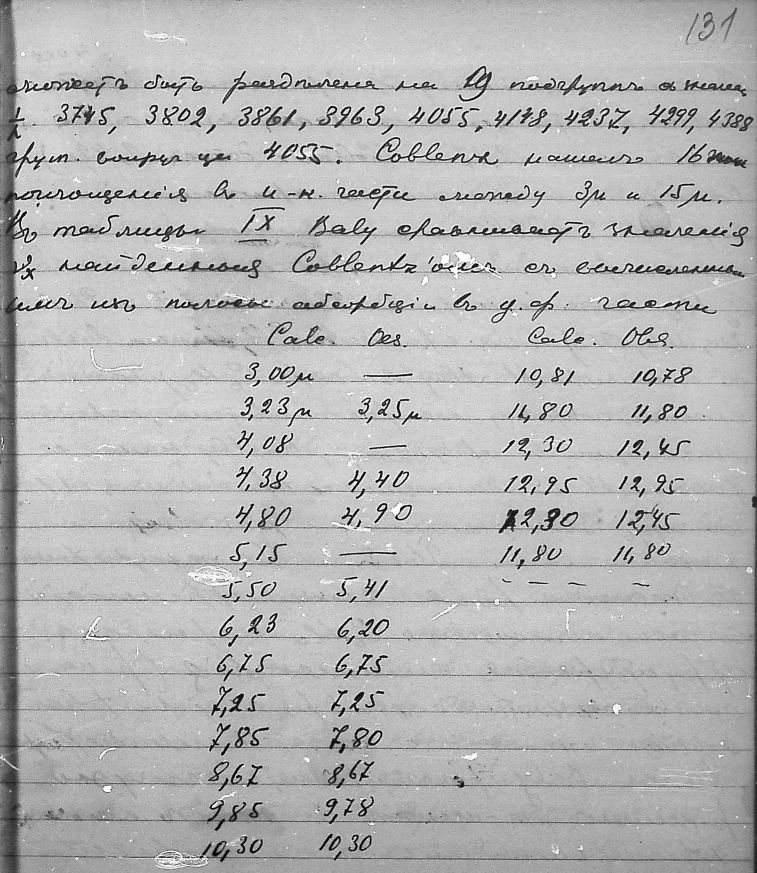 131
можетъ быть разделена на 19 подгруппъ
1/λ 3745, 3802, 3861, 3963, 4055, 4148, 4237, 4299, 4388
груп. вокругъ 4055. Coblentz нашелъ 16
поглощенія въ и-к. части между 3μ и 15μ.
Въ таблицы IX Baly сравниваетъ значенія
найденныя Coblentz'омъ съ вычисленны
ихъ полосы абсорбціи въ у.ф. части
Calc. Obs. Calc. Obs.
3,00μ — 10,81 10,78
3,23μ 3,25μ 11,80 11,80
4,08 — 12,30 12,45
4,38 4,40 12,95 12,95
4,80 4,90 12,30 12,45
5,15 — 11,80 11,80
5,50 5,41 – – – –
6,23 6,20
6,75 6,75
7,25 7,25
7,85 7,80
8,67 8,67
9,85 9,78
10,30 10,30